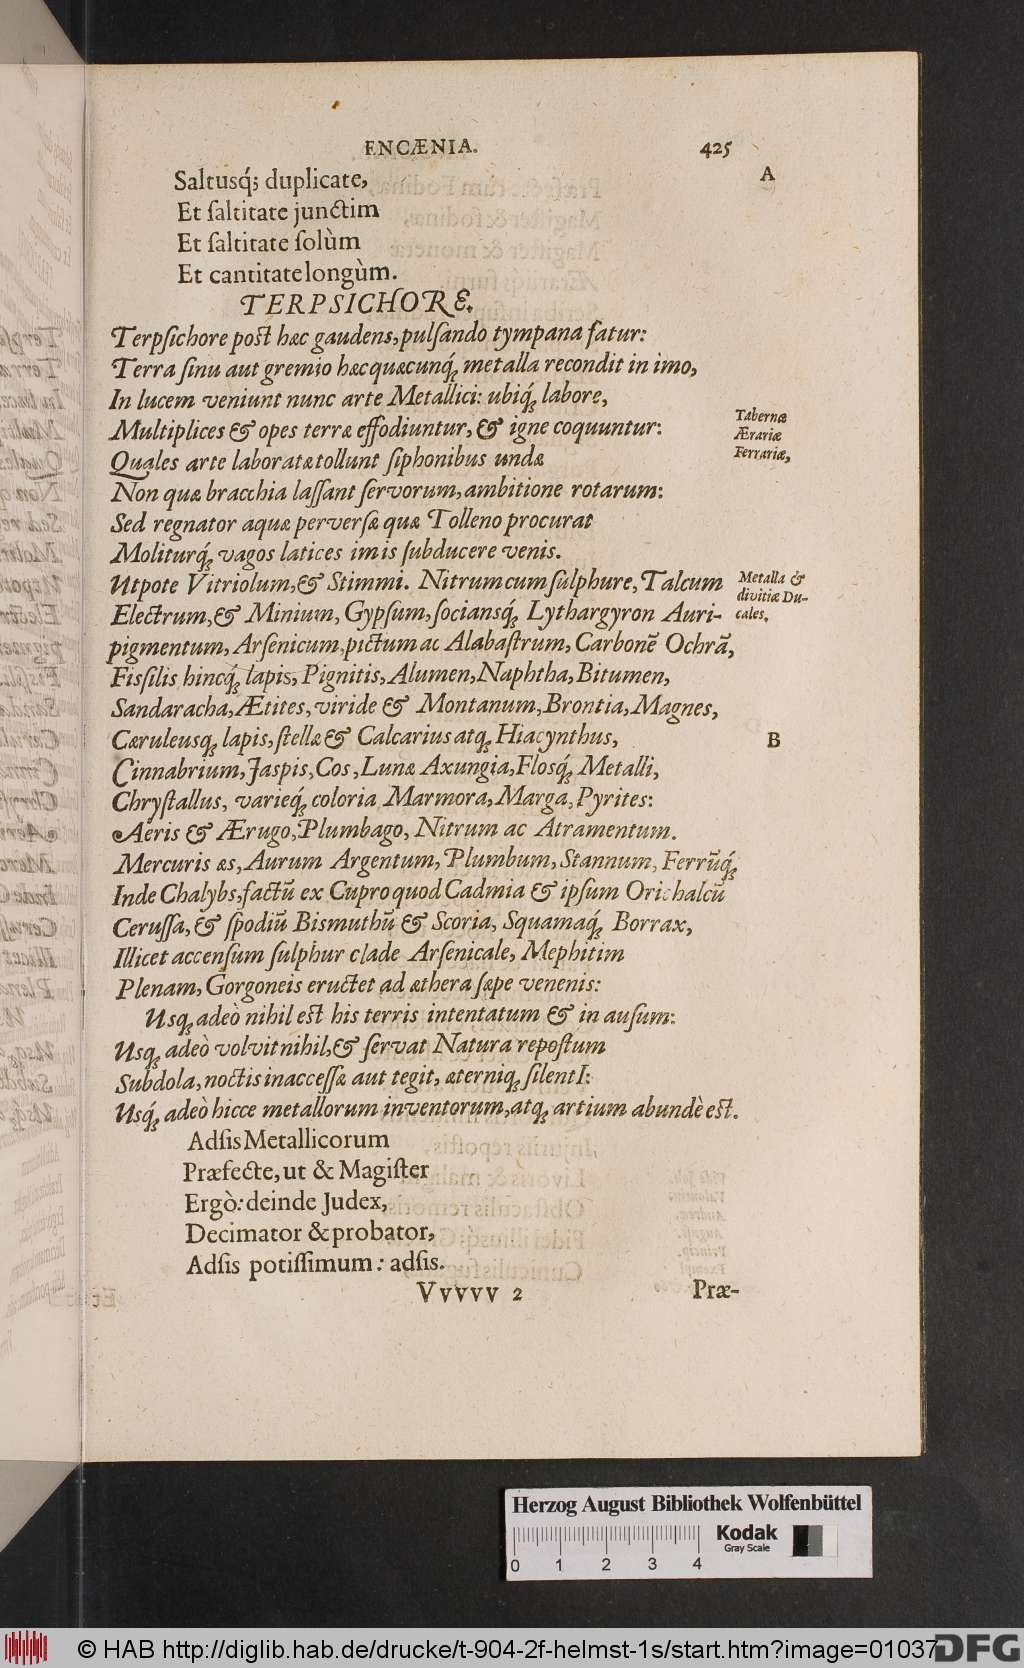 ENCÆNIA. 425
A
Saltusq́; duplicate,
Et ſaltitate junctim
Et ſaltitate ſolùm
Et cantitate longùm.
TERPSICHORE.
Terpſichore poſt hæc gaudens, pulſando tympana fatur:
Terra ſinu aut gremio hæc quæcunq́; metalla recondit in imo,
In lucem veniunt nunc arte Metallici: ubiq́; labore,
Multiplices & opes terræ effodiuntur, & igne coquuntur:
Tabernæ
Ærariæ
Ferrariæ,
Quales arte laboratæ tollunt ſiphonibus undæ
Non quæ bracchia laſſant ſervorum, ambitione rotarum:
Sed regnator aquæ perverſæ quæ Tolleno procurat
Moliturq́; vagos latices imis ſubducere venis.
Utpote Vitriolum, & Stimmi. Nitrum cum ſulphure, Talcum
Metalla &
divitiæ Du-
cales.
Electrum, & Minium, Gypſum, ſociansq́; Lythargyron Auri-
pigmentum, Arſenicum, pictum ac Alabaſtrum, Carbonē Ochrā,
Fisſilis hincq́; lapis, Pignitis, Alumen, Naphtha, Bitumen,
Sandaracha, Ætites, viride & Montanum, Brontia, Magnes,
Cæruleusq; lapis, ſtellæ & Calcarius atq; Hiacynthus,
B
Cinnabrium, Jaspis, Cos, Lunæ Axungia, Flosq́; Metalli,
Chryſtallus, varieq́; coloria Marmora, Marga, Pyrites:
Aëris & Ærugo, Plumbago, Nitrum ac Atramentum.
Mercuris æs, Aurum Argentum, Plumbum, Stannum, Ferrūq́;
Inde Chalybs, factū ex Cupro quod Cadmia & ipſum Orichalcū
Ceruſſa, & ſpodiū Bismuthū & Scoria, Squamaq́; Borrax,
Illicet accenſum ſulphur clade Arſenicale, Mephitim
Plenam, Gorgoneis eructet ad æthera ſæpe venenis:
Usq; adeò nihil eſt his terris intentatum & in auſum:
Usq; adeò volvit nihil, & ſervat Natura repoſtum
Subdola, noctis inacceſſæ aut tegit, æterniq; ſilentI:
Usq́; adeò hicce metallorum inventorum, atq; artium abundè eſt.
Adſis Metallicorum
Præfecte, ut & Magiſter
Ergò: deinde Judex,
Decimator & probator,
Adſis potiſſimum: adſis.
Vvvvv 2 Præ-
Herzog August Bibliothek Wolfenbüttel
Kodak
Gray Scale
0 1 2 3 4
© HAB http://diglib.hab.de/drucke/t-904-2f-helmst-1s/start.htm?image=01037
DFG